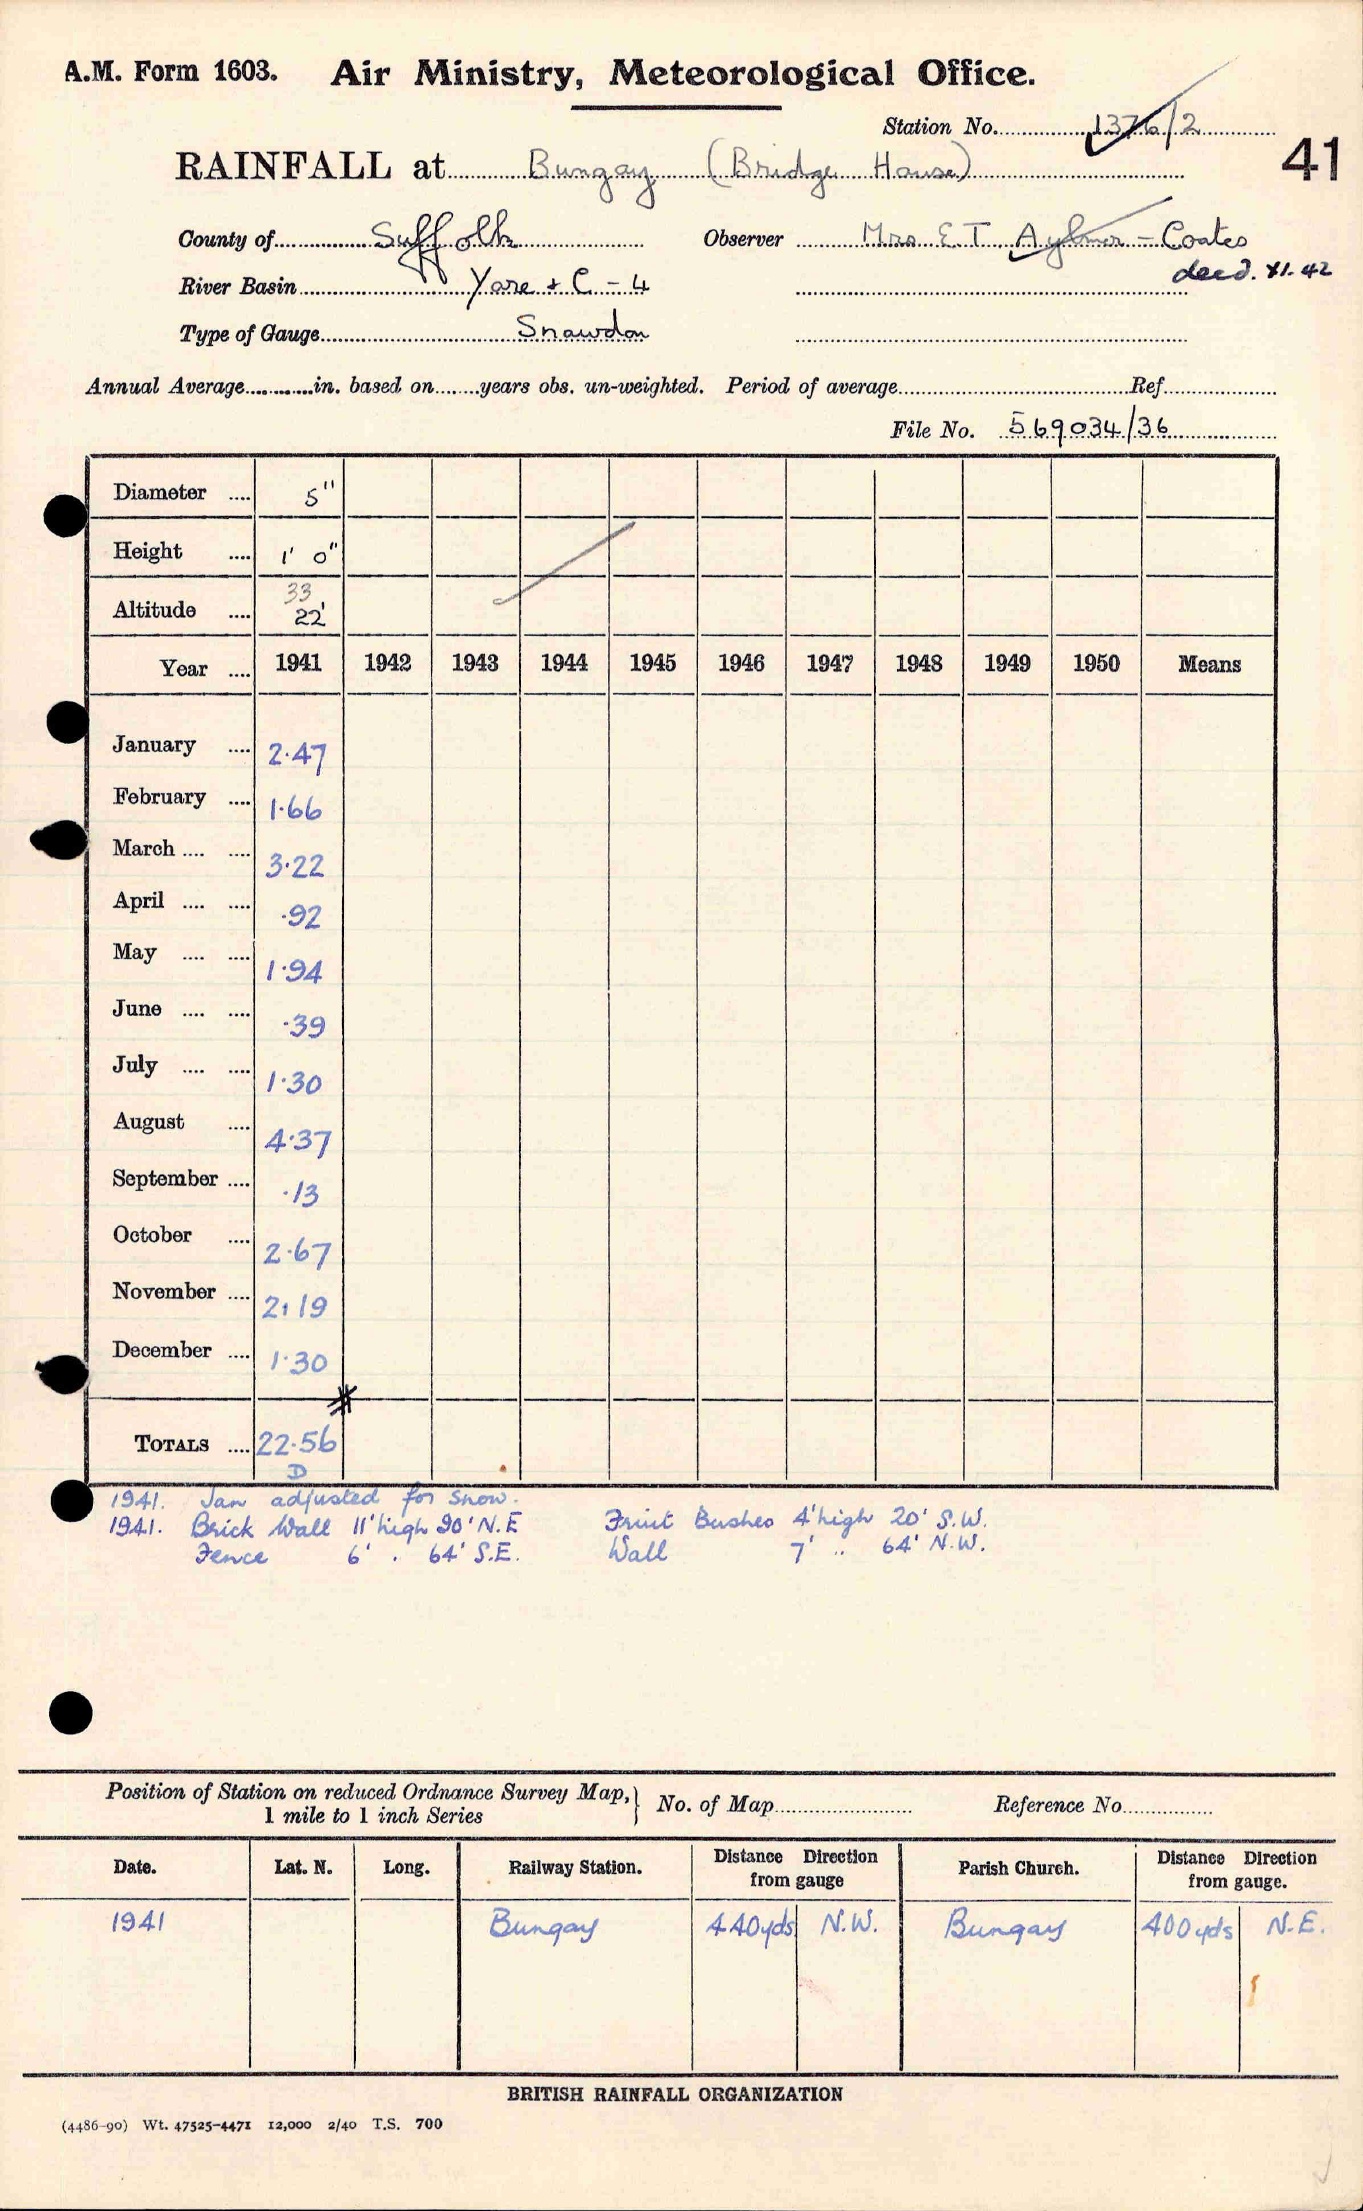 A.M. Form 1603. Air Ministry, Meteorological Office.
Station No. 1376/2
41
RAINFALL at Bungay (Bridge House)
County of Suffolk Observer Mrs E T Aylmer-Coates
decd. XI. 42
River Basin Yare + C - 4
Type of Gauge Snowdon
Annual Average in. based on years obs. un-weighted. Period of average Ref.
File No. 569034/36
Diameter .... 5"
Height .... 1' 0"
33
Altitude .... 22'
Year .... 1941 1942 1943 1944 1945 1946 1947 1948 1949 1950 Means
January .... 2.47
February .... 1.66
March .... .... 3.22
April .... .... .92
May .... .... 1.94
June .... .... .39
July .... .... 1.30
August .... 4.37
September .... .13
October .... 2.67
November .... 2.19
December .... 1.30
TOTALS .... 22.56
D
1941. Jan adjusted for snow.
1941. Brick Wall 11' high 20' N.E Fruit Bushes 4' high 20' S.W.
Fence 6' " 64' S.E. Wall 7' " 64' N.W.
Position of Station on reduced Ordnance Survey Map, 1 mile to 1 inch Series } No. of Map Reference No.
Date. Lat. N. Long. Railway Station. Distance Direction from gauge Parish Church. Distance Direction from gauge.
1941 Bungay 440yds N.W. Bungay 400yds N.E.
BRITISH RAINFALL ORGANIZATION
(4486-90) Wt. 47525-4471 12,000 2/40 T.S. 700